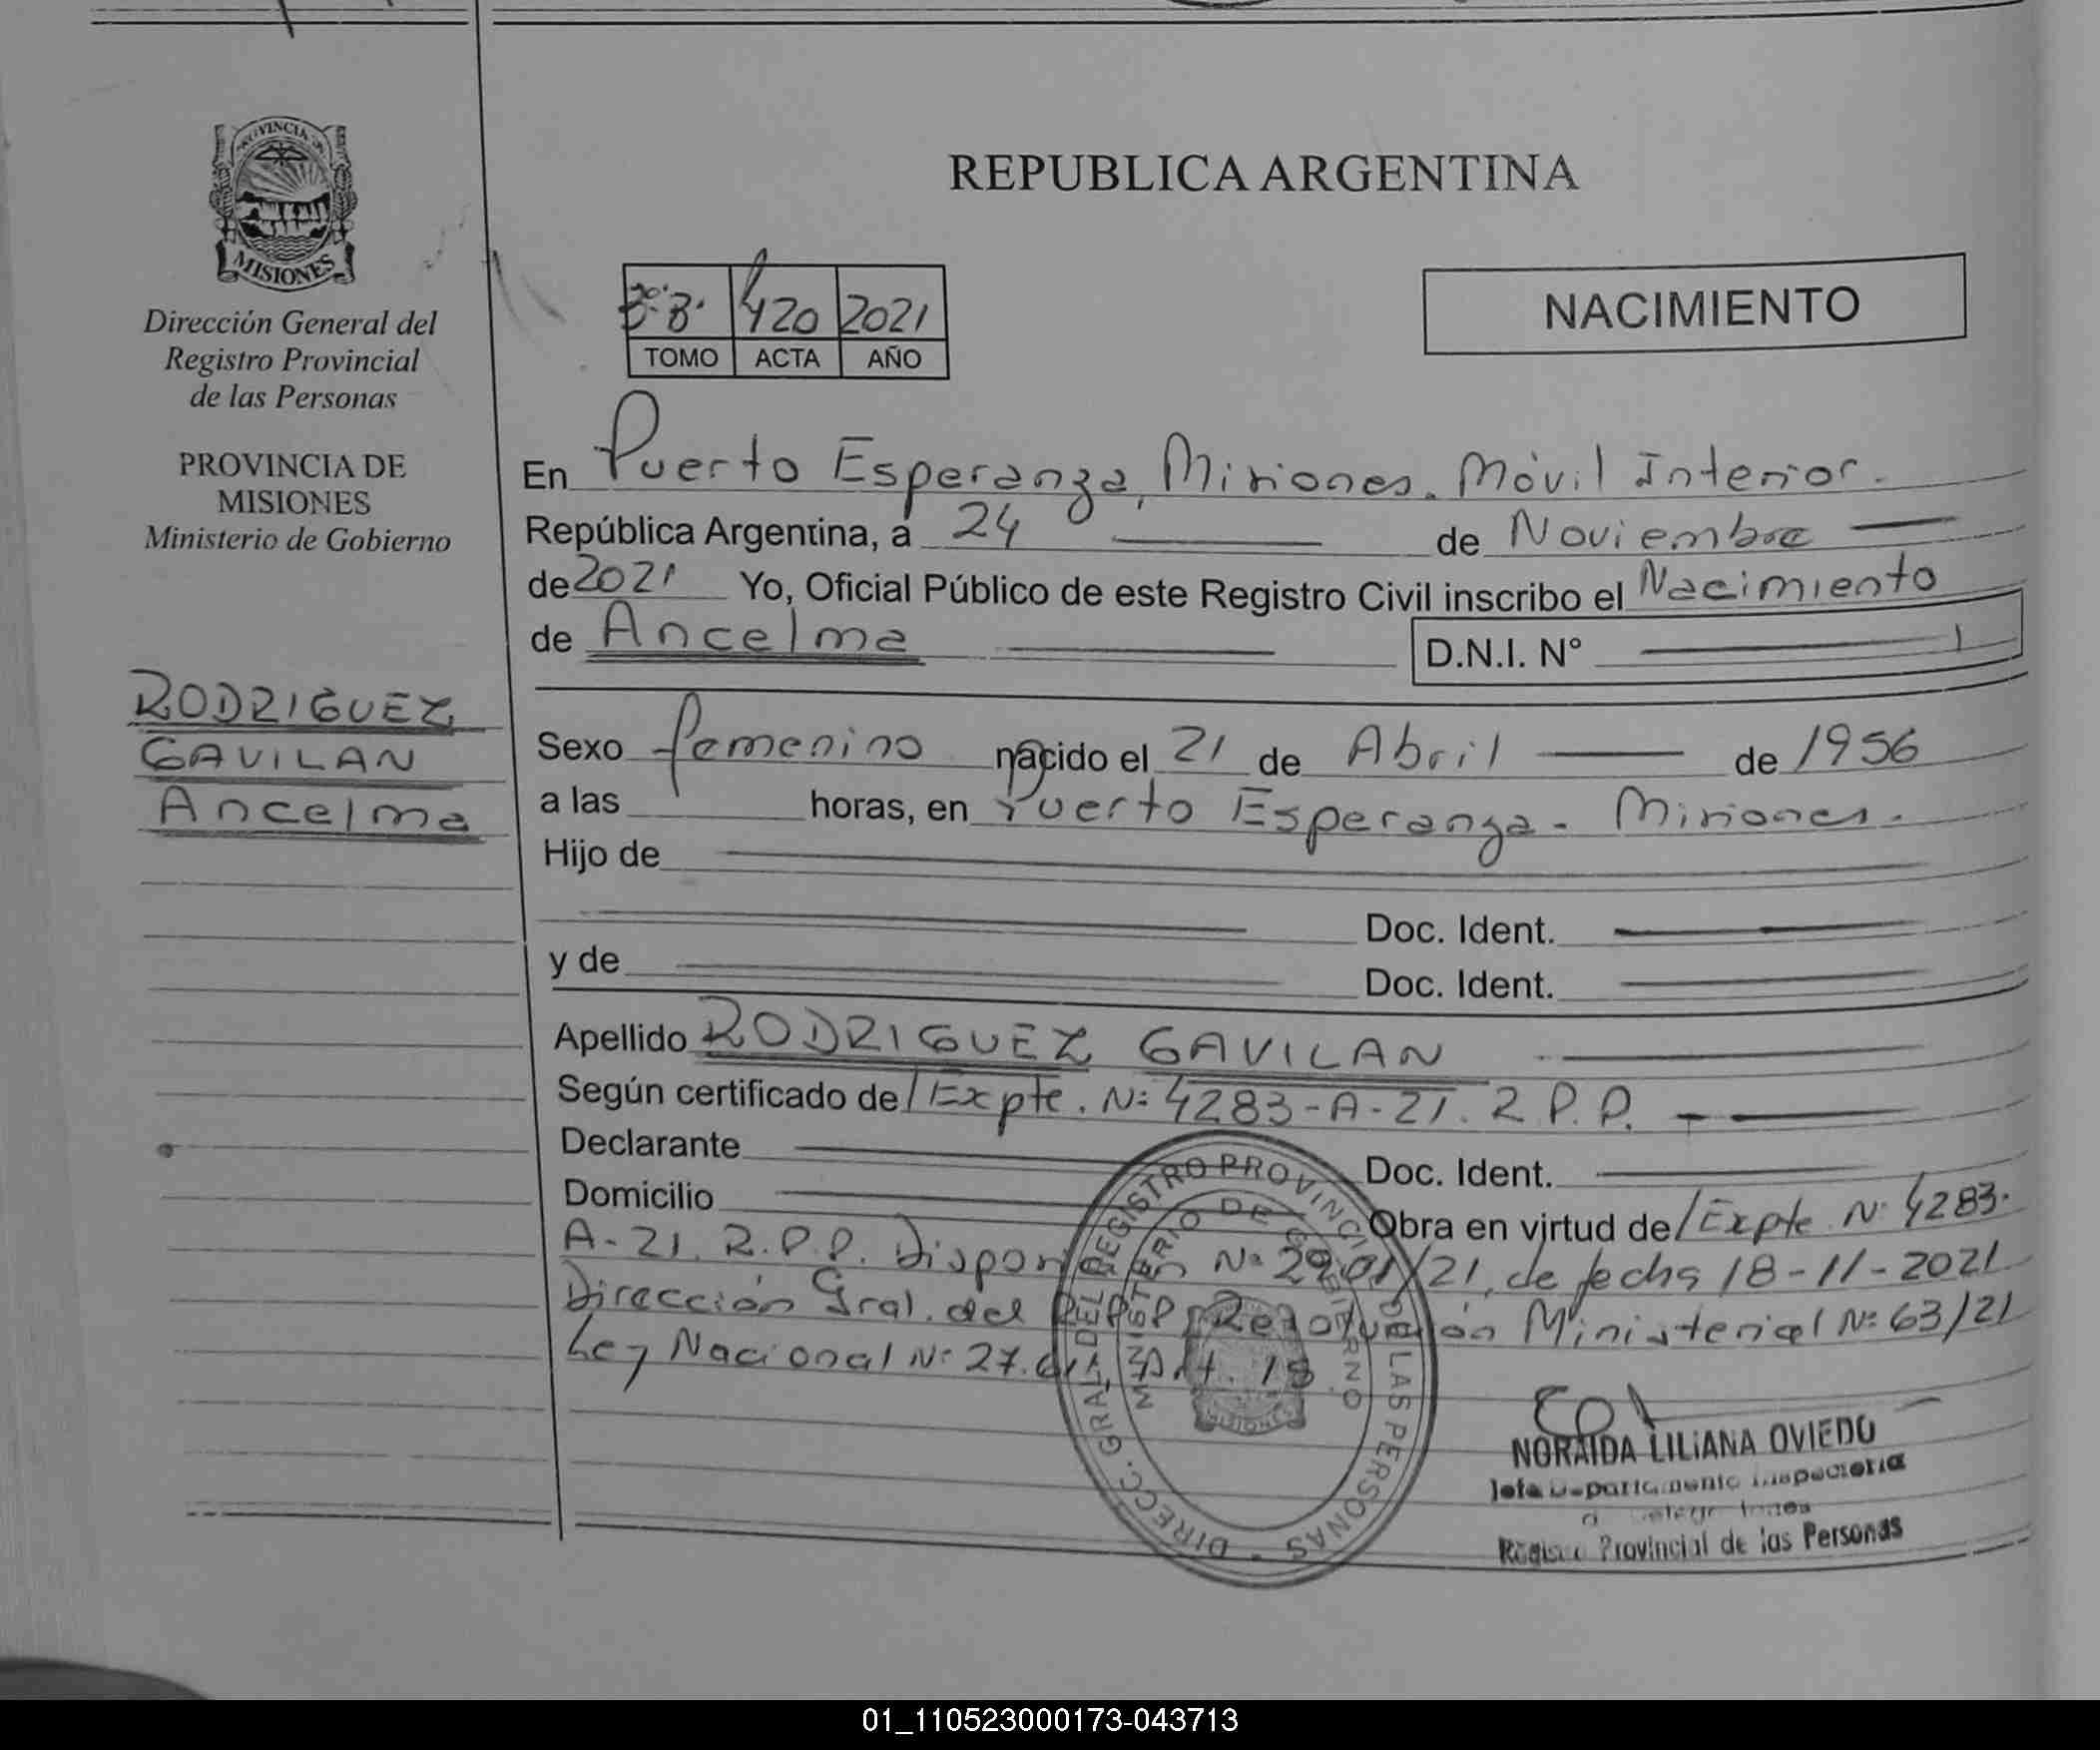 PROVINCIA DE
MISIONES
Dirección General del
Registro Provincial
de las Personas
PROVINCIA DE
MISIONES
Ministerio de Gobierno
RODRIGUEZ
GAVILAN
Ancelma
REPUBLICA ARGENTINA
420 2021
TOMO ACTA AÑO
NACIMIENTO
En Puerto Esperanza, Misiones. Móvil Interior.
República Argentina, a 24 de Noviembre
de 2021 Yo, Oficial Público de este Registro Civil inscribo el Nacimiento
de Ancelma D.N.I. N°
Sexo femenino nacido el 21 de Abril de 1956
a las horas, en Puerto Esperanza - Misiones.
Hijo de
Doc. Ident.
y de Doc. Ident.
Apellido RODRIGUEZ GAVILAN
Según certificado de/Expte. N: 4283-A-21. R.P.P.
Declarante
Doc. Ident.
Domicilio
Obra en virtud de/Expte N: 4283-
A-21. R.P.P. Disposición N: /21, de fecha 18-11-2021
Dirección Gral. del R.P.P. Resolución Ministerial N: 63/21
Ley Nacional N: Art. 18
DIRECC. GRAL. DEL REGISTRO PROVINCIAL DE LAS PERSONAS
MINISTERIO DE GOBIERNO
MISIONES
NORAIDA LILIANA OVIEDO
Jefa Departamento Inspectoria
Registro Provincial de las Personas
01_110523000173-043713